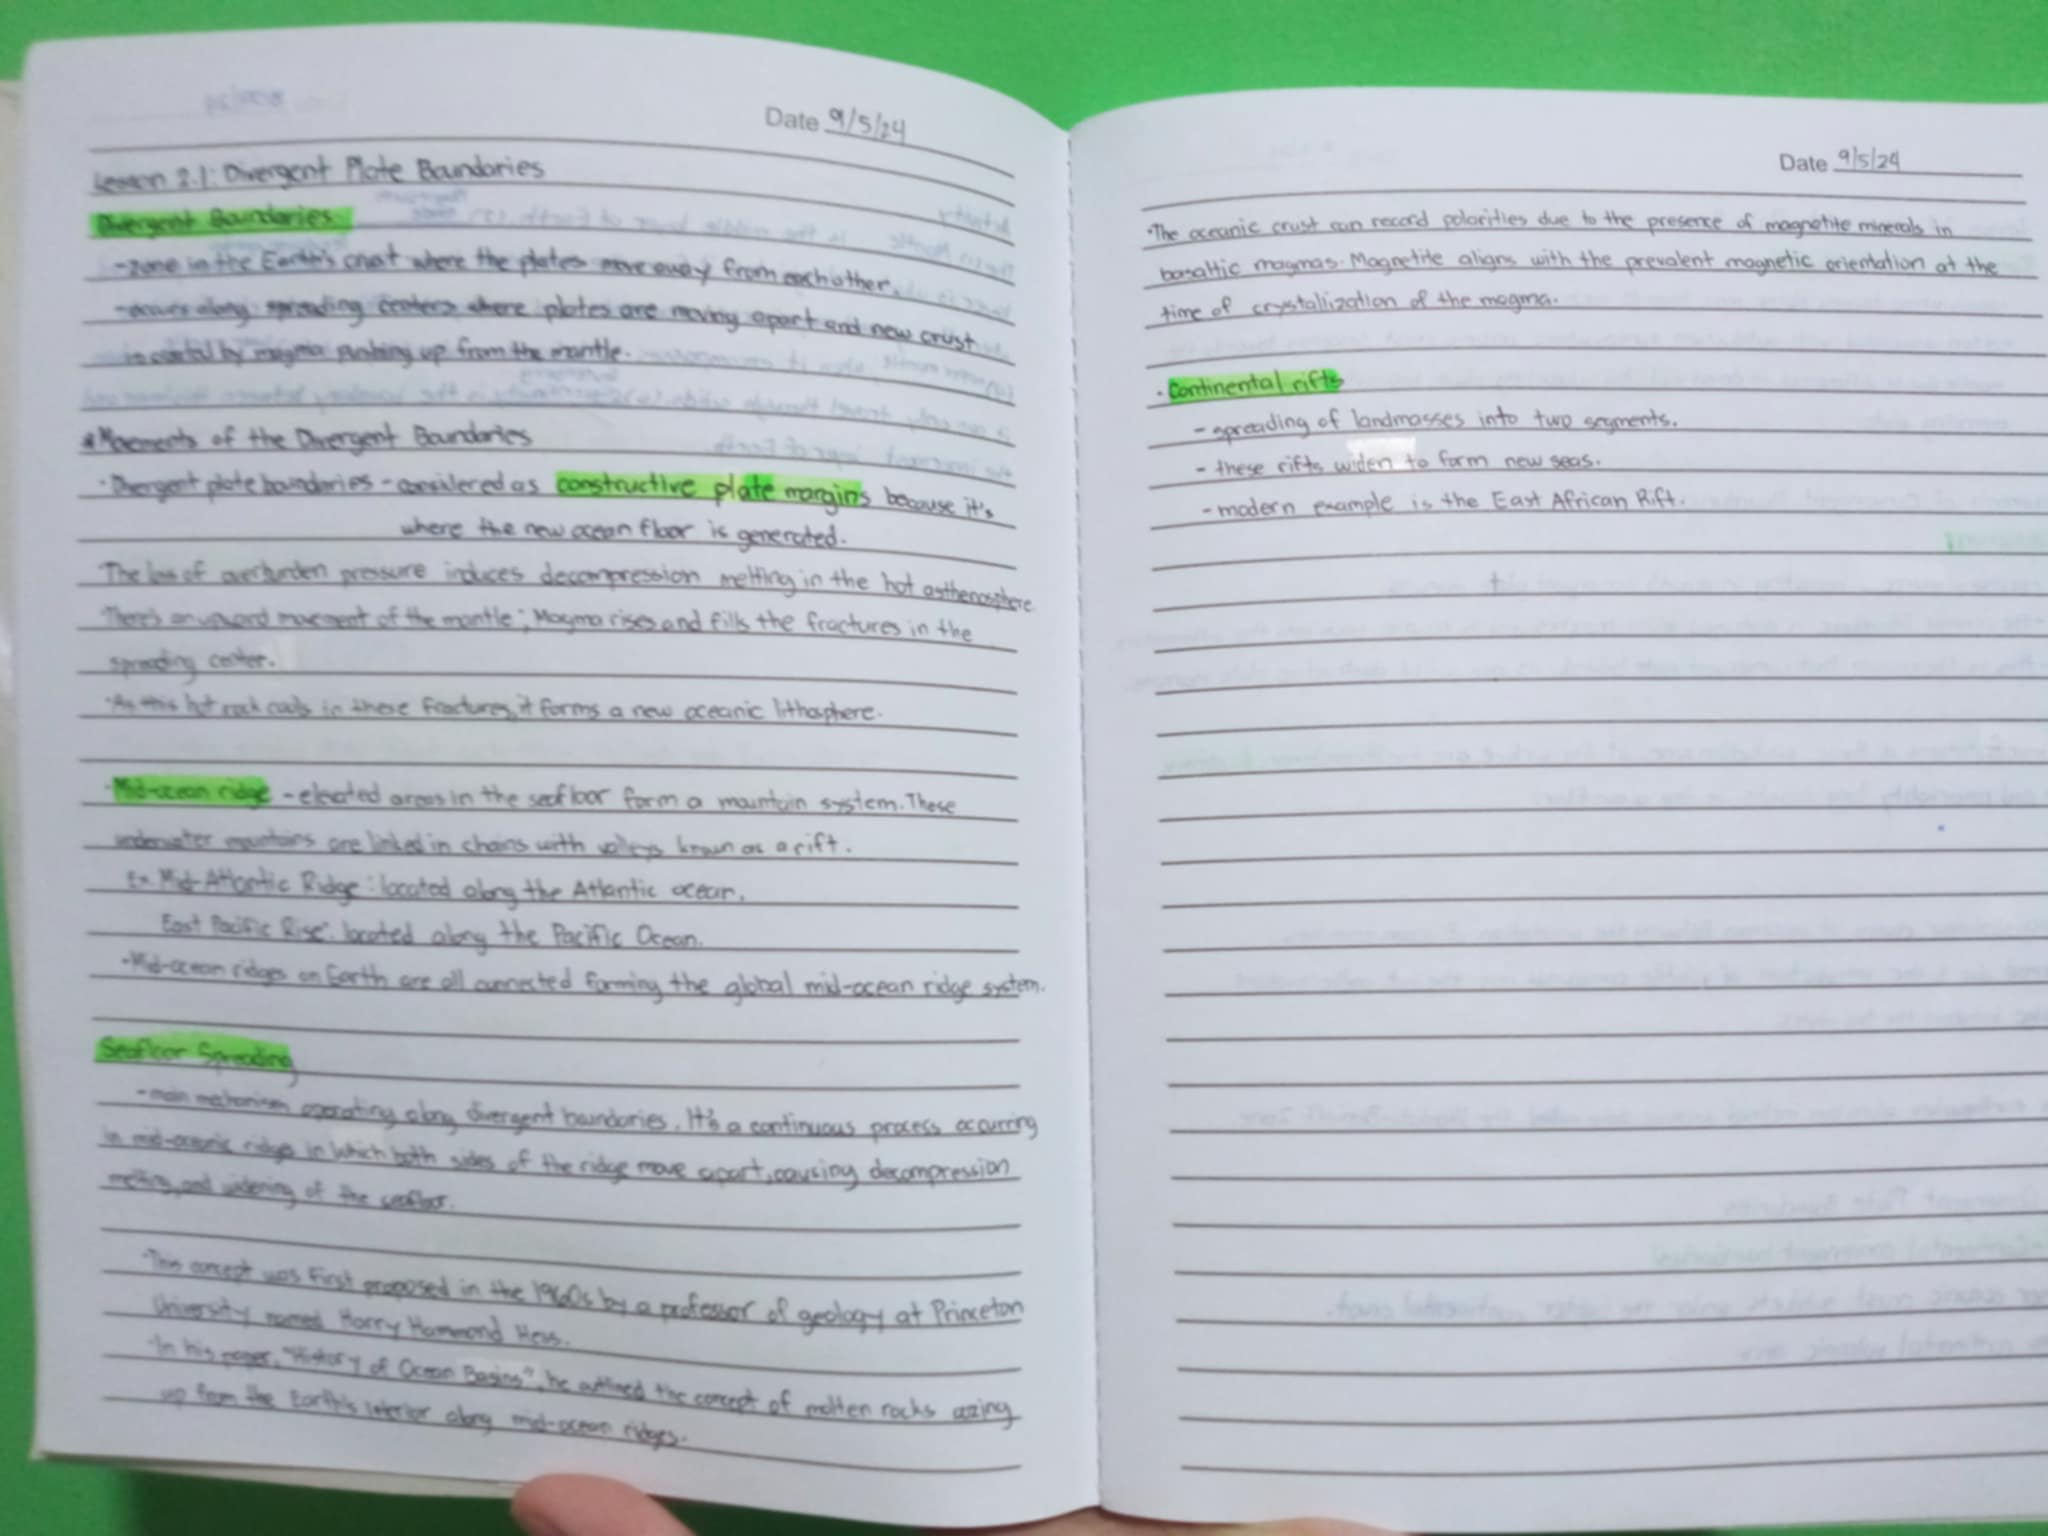 Date 9/5/24
Lesson 2.1: Divergent Plate Boundaries
Divergent Boundaries
- zone in the Earth's crust where the plates move away from each other.
- occurs along spreading centers where plates are moving apart and new crust
is created by magma pushing up from the mantle.
* Movements of the Divergent Boundaries
• Divergent plate boundaries - considered as constructive plate margins because it's
where the new ocean floor is generated.
The loss of overburden pressure induces decompression melting in the hot asthenosphere
There's an upward movement of the mantle; Magma rises and fills the fractures in the
spreading center.
• As this hot rock cools in these fractures, it forms a new oceanic lithosphere.
• Mid-ocean ridge - elevated areas in the seafloor form a mountain system. These
underwater mountains are linked in chains with valleys known as a rift.
Ex. Mid-Atlantic Ridge: located along the Atlantic ocean.
East Pacific Rise: located along the Pacific Ocean.
• Mid-ocean ridges on Earth are all connected forming the global mid-ocean ridge system.
Seafloor Spreading
- main mechanism operating along divergent boundaries. It's a continuous process ocurring
in mid-oceanic ridges in which both sides of the ridge move apart, causing decompression
melting and widening of the seafloor.
• This concept was first proposed in the 1960s by a professor of geology at Princeton
University named Harry Hammond Hess.
• In his paper, "History of Ocean Basins", he outlined the concept of molten rocks oozing
up from the Earth's interior along mid-ocean ridges.
Date 9/5/24
• The oceanic crust can record polarities due to the presence of magnetite minerals in
basaltic magmas. Magnetite aligns with the prevalent magnetic orientation at the
time of crystallization of the magma.
• Continental rifts
- spreading of landmasses into two segments.
- these rifts widen to form new seas.
- modern example is the East African Rift.